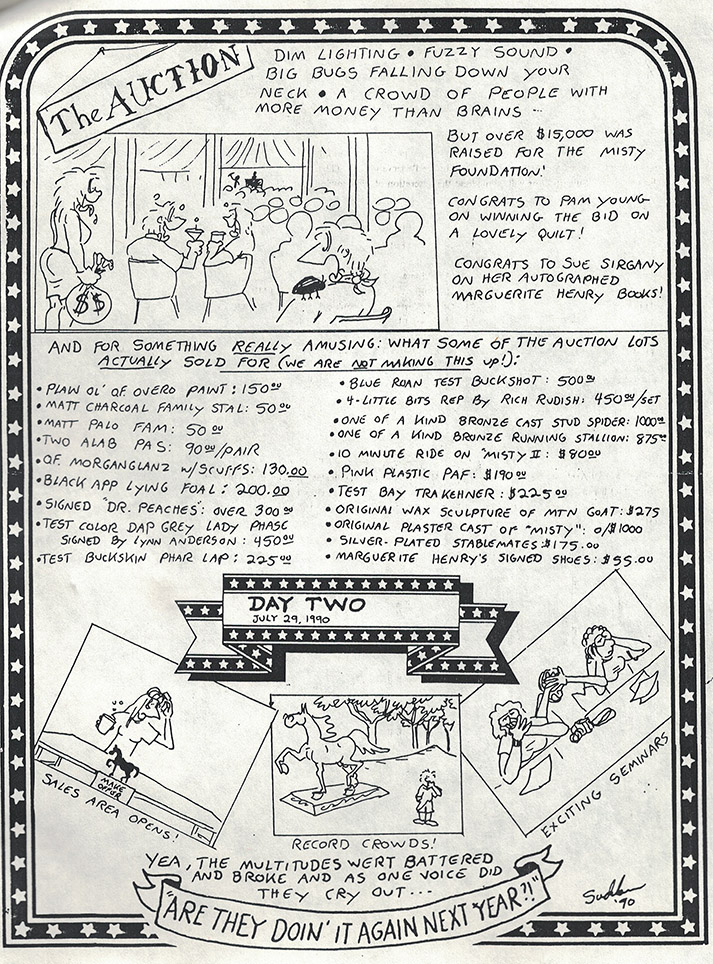 The AUCTION
DIM LIGHTING • FUZZY SOUND •
BIG BUGS FALLING DOWN YOUR
NECK • A CROWD OF PEOPLE WITH
MORE MONEY THAN BRAINS ...
BUT OVER $15,000 WAS
RAISED FOR THE MISTY
FOUNDATION!
CONGRATS TO PAM YOUNG
ON WINNING THE BID ON
A LOVELY QUILT!
CONGRATS TO SUE SIRGANY
ON HER AUTOGRAPHED
MARGUERITE HENRY BOOKS!
$$
AND FOR SOMETHING REALLY AMUSING: WHAT SOME OF THE AUCTION LOTS
ACTUALLY SOLD FOR (WE ARE NOT MAKING THIS UP!):
• PLAIN OL' GF OVERO PAINT: 150.00
• MATT CHARCOAL FAMILY STAL: 50.00
• MATT PALO FAM: 50.00
• TWO ALAB PAS: 90.00/PAIR
• GF MORGANGLANZ W/SCUFFS: 130.00
• BLACK APP LYING FOAL: 200.00
• SIGNED "DR. PEACHES": OVER 300.00
• TEST COLOR DAP GREY LADY PHASE
SIGNED BY LYNN ANDERSON: 450.00
• TEST BUCKSKIN PHAR LAP: 225.00
• BLUE ROAN TEST BUCKSHOT: 500.00
• 4-LITTLE BITS REP BY RICH RUDISH: 450.00/SET
• ONE OF A KIND BRONZE CAST STUD SPIDER: 1000.00
• ONE OF A KIND BRONZE RUNNING STALLION: 875.00
• 10 MINUTE RIDE ON "MISTY II: $80.00
• PINK PLASTIC PAF: $190.00
• TEST BAY TRAKEHNER: $225.00
• ORIGINAL WAX SCULPTURE OF MTN GOAT: $275
• ORIGINAL PLASTER CAST OF "MISTY": O/$1000
• SILVER-PLATED STABLEMATES: $175.00
• MARGUERITE HENRY'S SIGNED SHOES: $55.00
DAY TWO
JULY 29, 1990
MAKE
OFFER
SALES AREA OPENS!
RECORD CROWDS!
EXCITING SEMINARS
YEA, THE MULTITUDES WERT BATTERED
AND BROKE AND AS ONE VOICE DID
THEY CRY OUT...
"ARE THEY DOIN' IT AGAIN NEXT YEAR?!"
'90